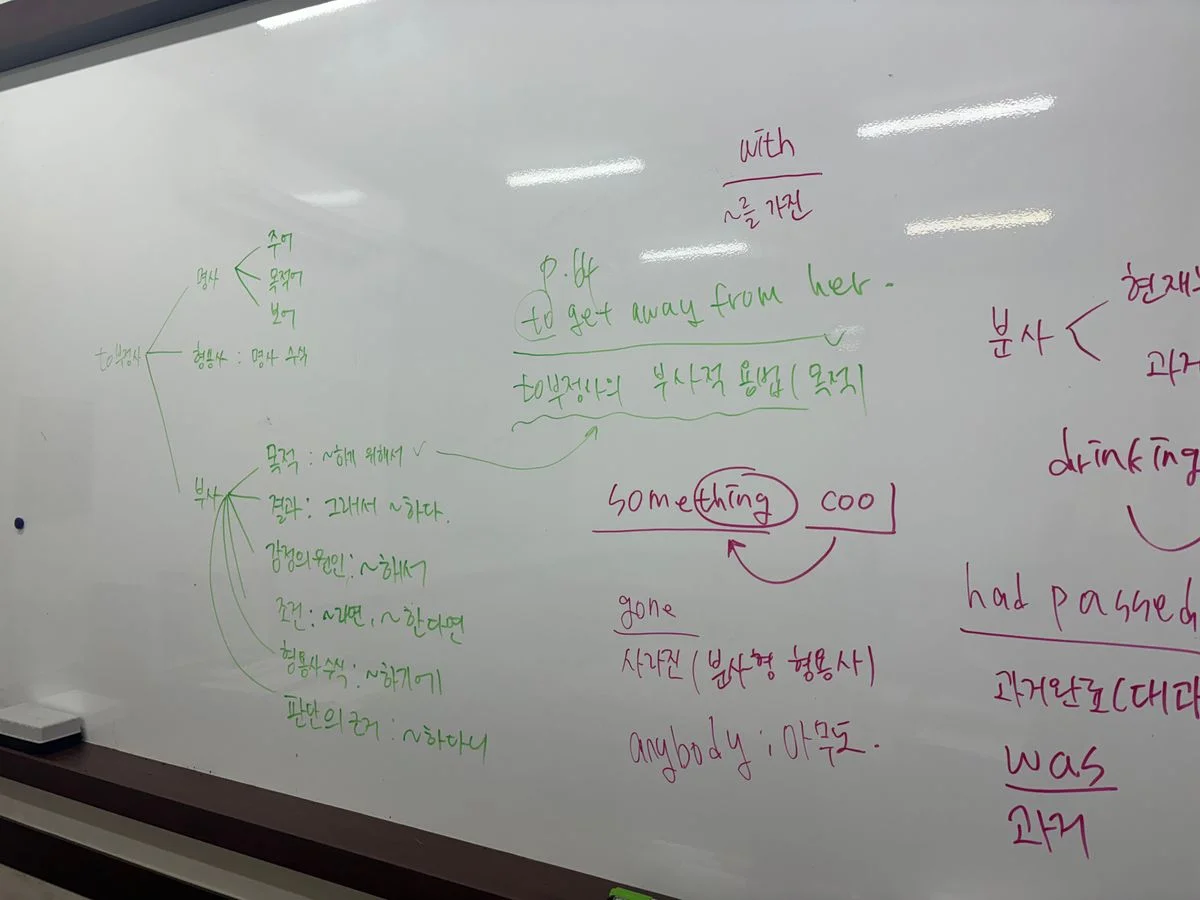 to부정사
명사
주어
목적어
보어
형용사 : 명사 수식
부사
목적 : ~하게 위해서 ✓
결과 : 그래서 ~하다.
감정의 원인 : ~해서
조건 : ~라면, ~한다면
형용사수식 : ~하기에
판단의 근거 : ~하다니
with
~를 가진
p.64
to get away from her.
to부정사의 부사적 용법(목적)
something cool
gone
사라진 (분사형 형용사)
anybody : 아무도.
분사
현재
과거
drinking
had passed
과거완료(대과
was
과거